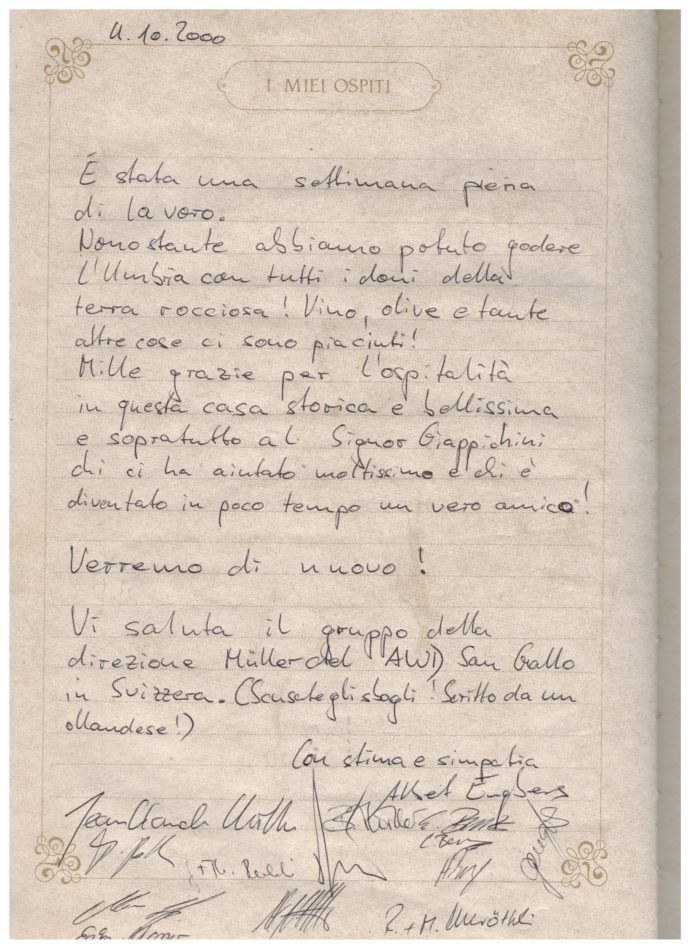 11.10.2000
I MIEI OSPITI
É stata una settimana piena
di lavoro.
Nonostante abbiamo potuto godere
l'Umbria con tutti i doni della
terra rocciosa! Vino, olive e tante
altre cose ci sono piaciuti!
Mille grazie per l'ospitalità
in questa casa storica e bellissima
e sopratutto al Signor Giappichini
chi ci ha aiutato moltissimo e chi è
diventato in poco tempo un vero amico!
Verremo di nuovo!
Vi saluta il gruppo della
direzione Müller del San Gallo
in Svizzera. (Scusate gli sbagli! Scritto da un
ollandese!)
Con stima e simpatia
Albert Engbers